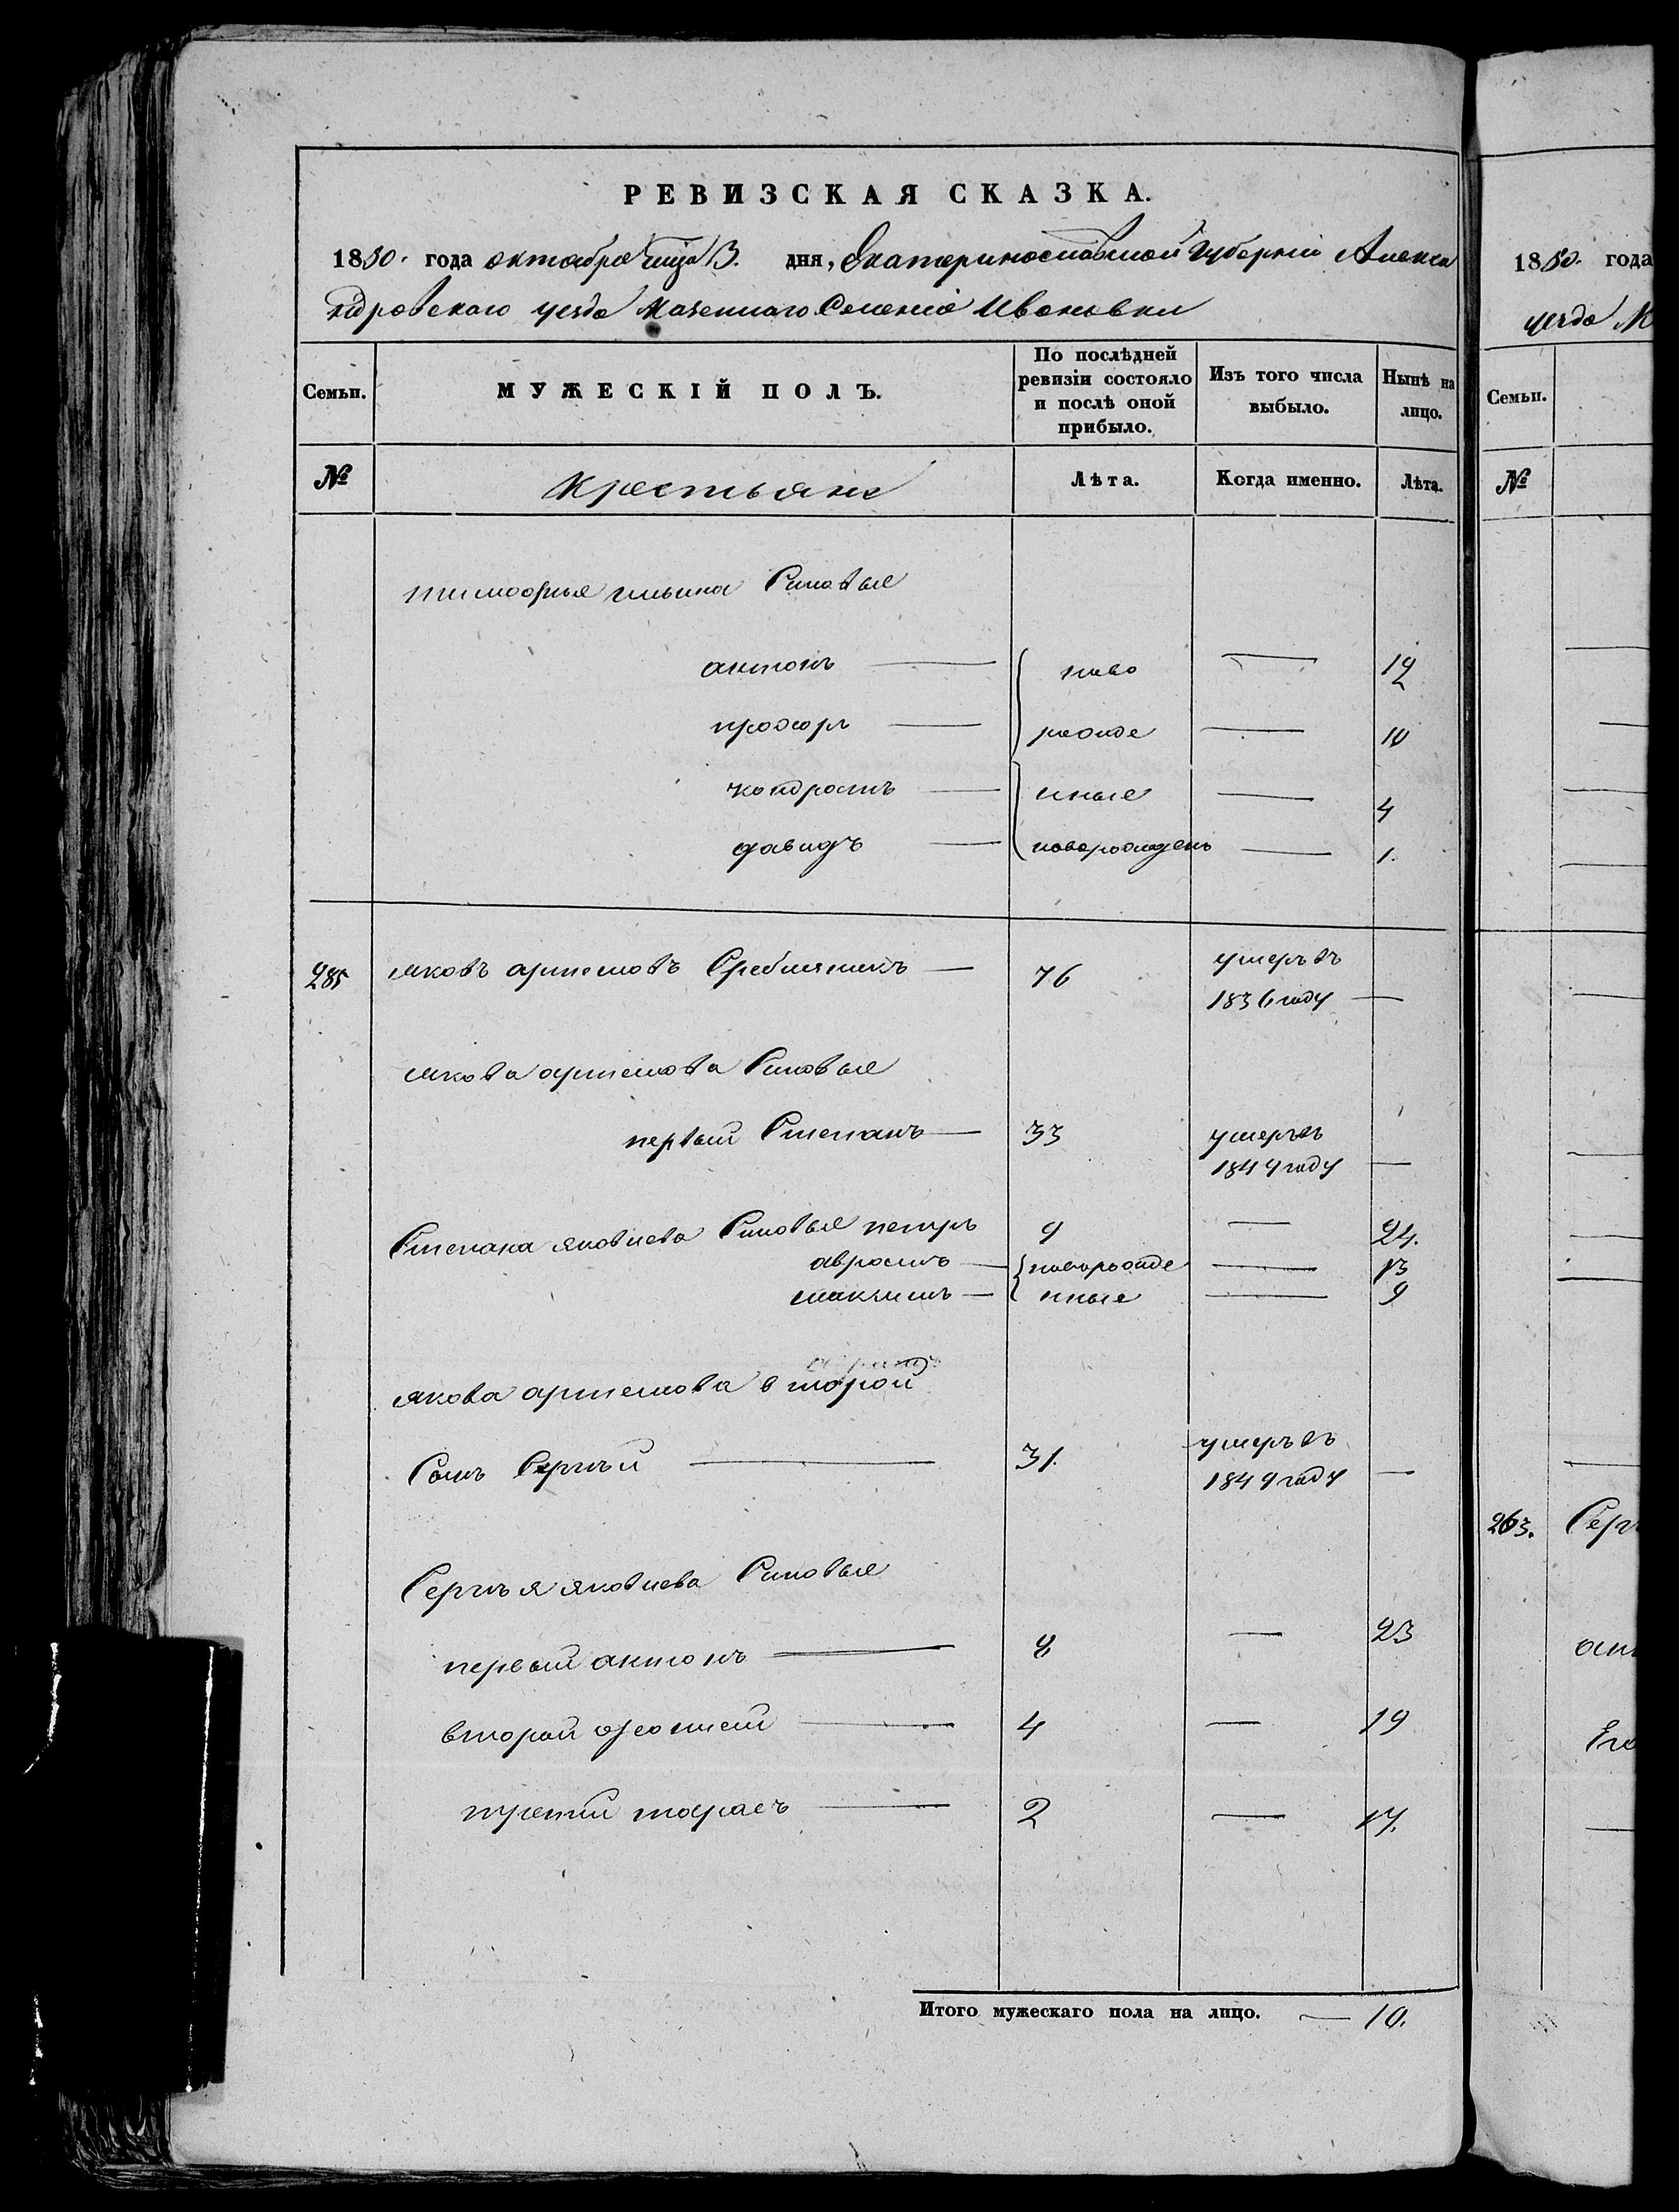 РЕВИЗСКАЯ СКАЗКА.
1850. года октября мца 13. дня, Екатеринославской губерніи Алекса
ндровскаго уезда Казеннаго Селенія Ивановки
Семьи. МУЖЕСКІЙ ПОЛЪ. По послѣдней ревизіи состояло и послѣ оной прибыло. Изъ того числа выбыло. Нынѣ на лицо.
№ Крестьяне Лѣта. Когда именно. Лѣта.
тимофея ильина Синовья
антонъ — ново — 12
прохоръ — рожде — 10
кондратъ — нные — 4
давидъ — новорожденъ — 1.
285 яковъ артемовъ — 76 умеръ въ
1836 году —
якова артемова Синовья
первый Степанъ — 33 умеръ въ
1844 году —
Степана яковлева Синовья петръ 9 — 24.
аврамъ — новорожде — 13
максимъ — нные — 9
якова артемова второй
Сынъ Сергѣй — 31. умеръ въ
1849 году —
Сергѣя яковлева Синовья
первый антонъ — 8 — 23
второй — 4 — 19
третій тарасъ — 2 — 17.
Итого мужескаго пола на лицо. — 10.
1850. года
уезда
Семьи.
№
263.